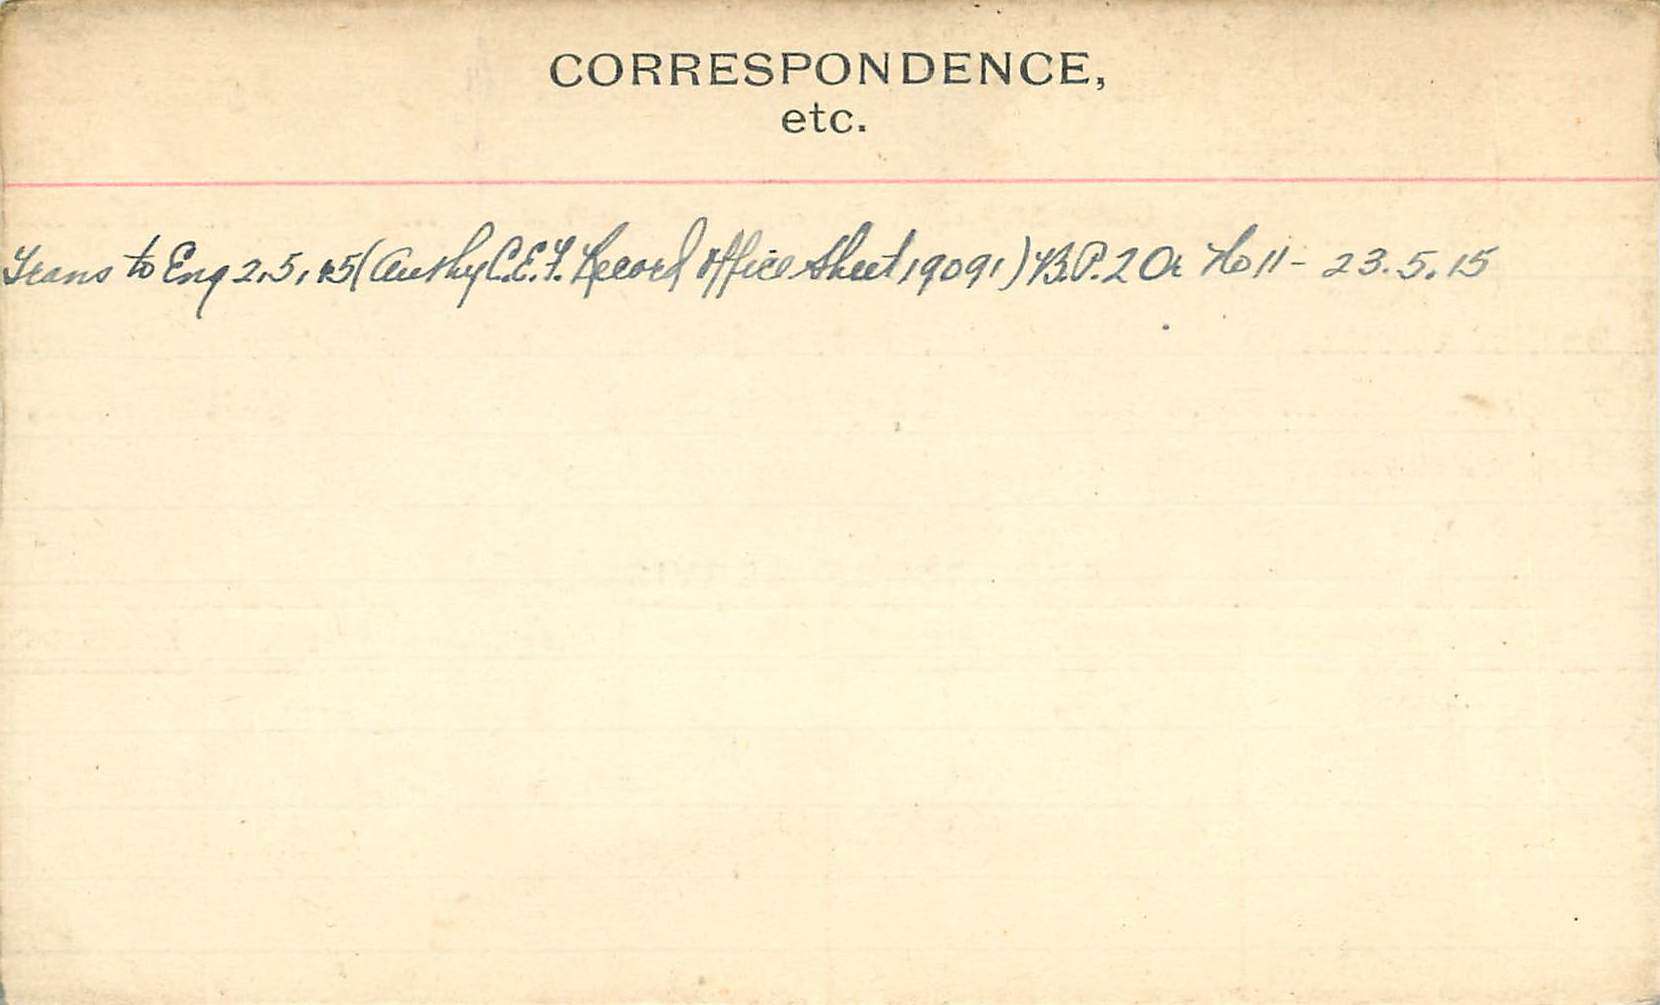 CORRESPONDENCE,
etc.
Trans to Eng 2.5.15 (Authy C.E.F. Record Office Sheet 19091) B.P. 2 Or No 11 - 23.5.15